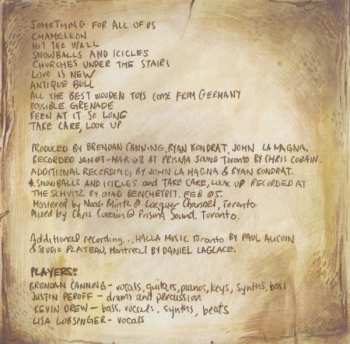 SOMETHING FOR ALL OF US
CHAMELEON
HIT THE WALL
SNOWBALLS AND ICICLES
CHURCHES UNDER THE STAIRS
LOVE IS NEW
ANTIQUE BULL
ALL THE BEST WOODEN TOYS COME FROM GERMANY
POSSIBLE GRENADE
BEEN AT IT SO LONG
TAKE CARE, LOOK UP
PRODUCED BY BRENDAN CANNING, RYAN KONDRAT, JOHN LA MAGNA.
RECORDED JAN 07-MAR 08 AT PRISMA SOUND TORONTO BY CHRIS
ADDITIONAL RECORDING, BY JOHN LA MAGNA & RYAN KONDRAT.
* SNOWBALLS AND ICICLES AND TAKE CARE, LOOK UP RECORDED AT
THE BY OHAD BENCHETRIT. FEB 05.
Mastered by Noah Mintz @ Lacquer Channel, Toronto
Mixed by Chris @ Prisma Sound, Toronto.
Additional recording... HALLA MUSIC Toronto by PAUL AUCOIN
& STUDIO PLATEAU, Montreal by DANIEL LAGLACE.
PLAYERS:
BRENDAN CANNING - vocals, guitars, pianos, keys, synths, bass
JUSTIN PEROFF - drums and percussion
KEVIN DREW - bass, vocals, synths, beats
LISA LOBSINGER - vocals